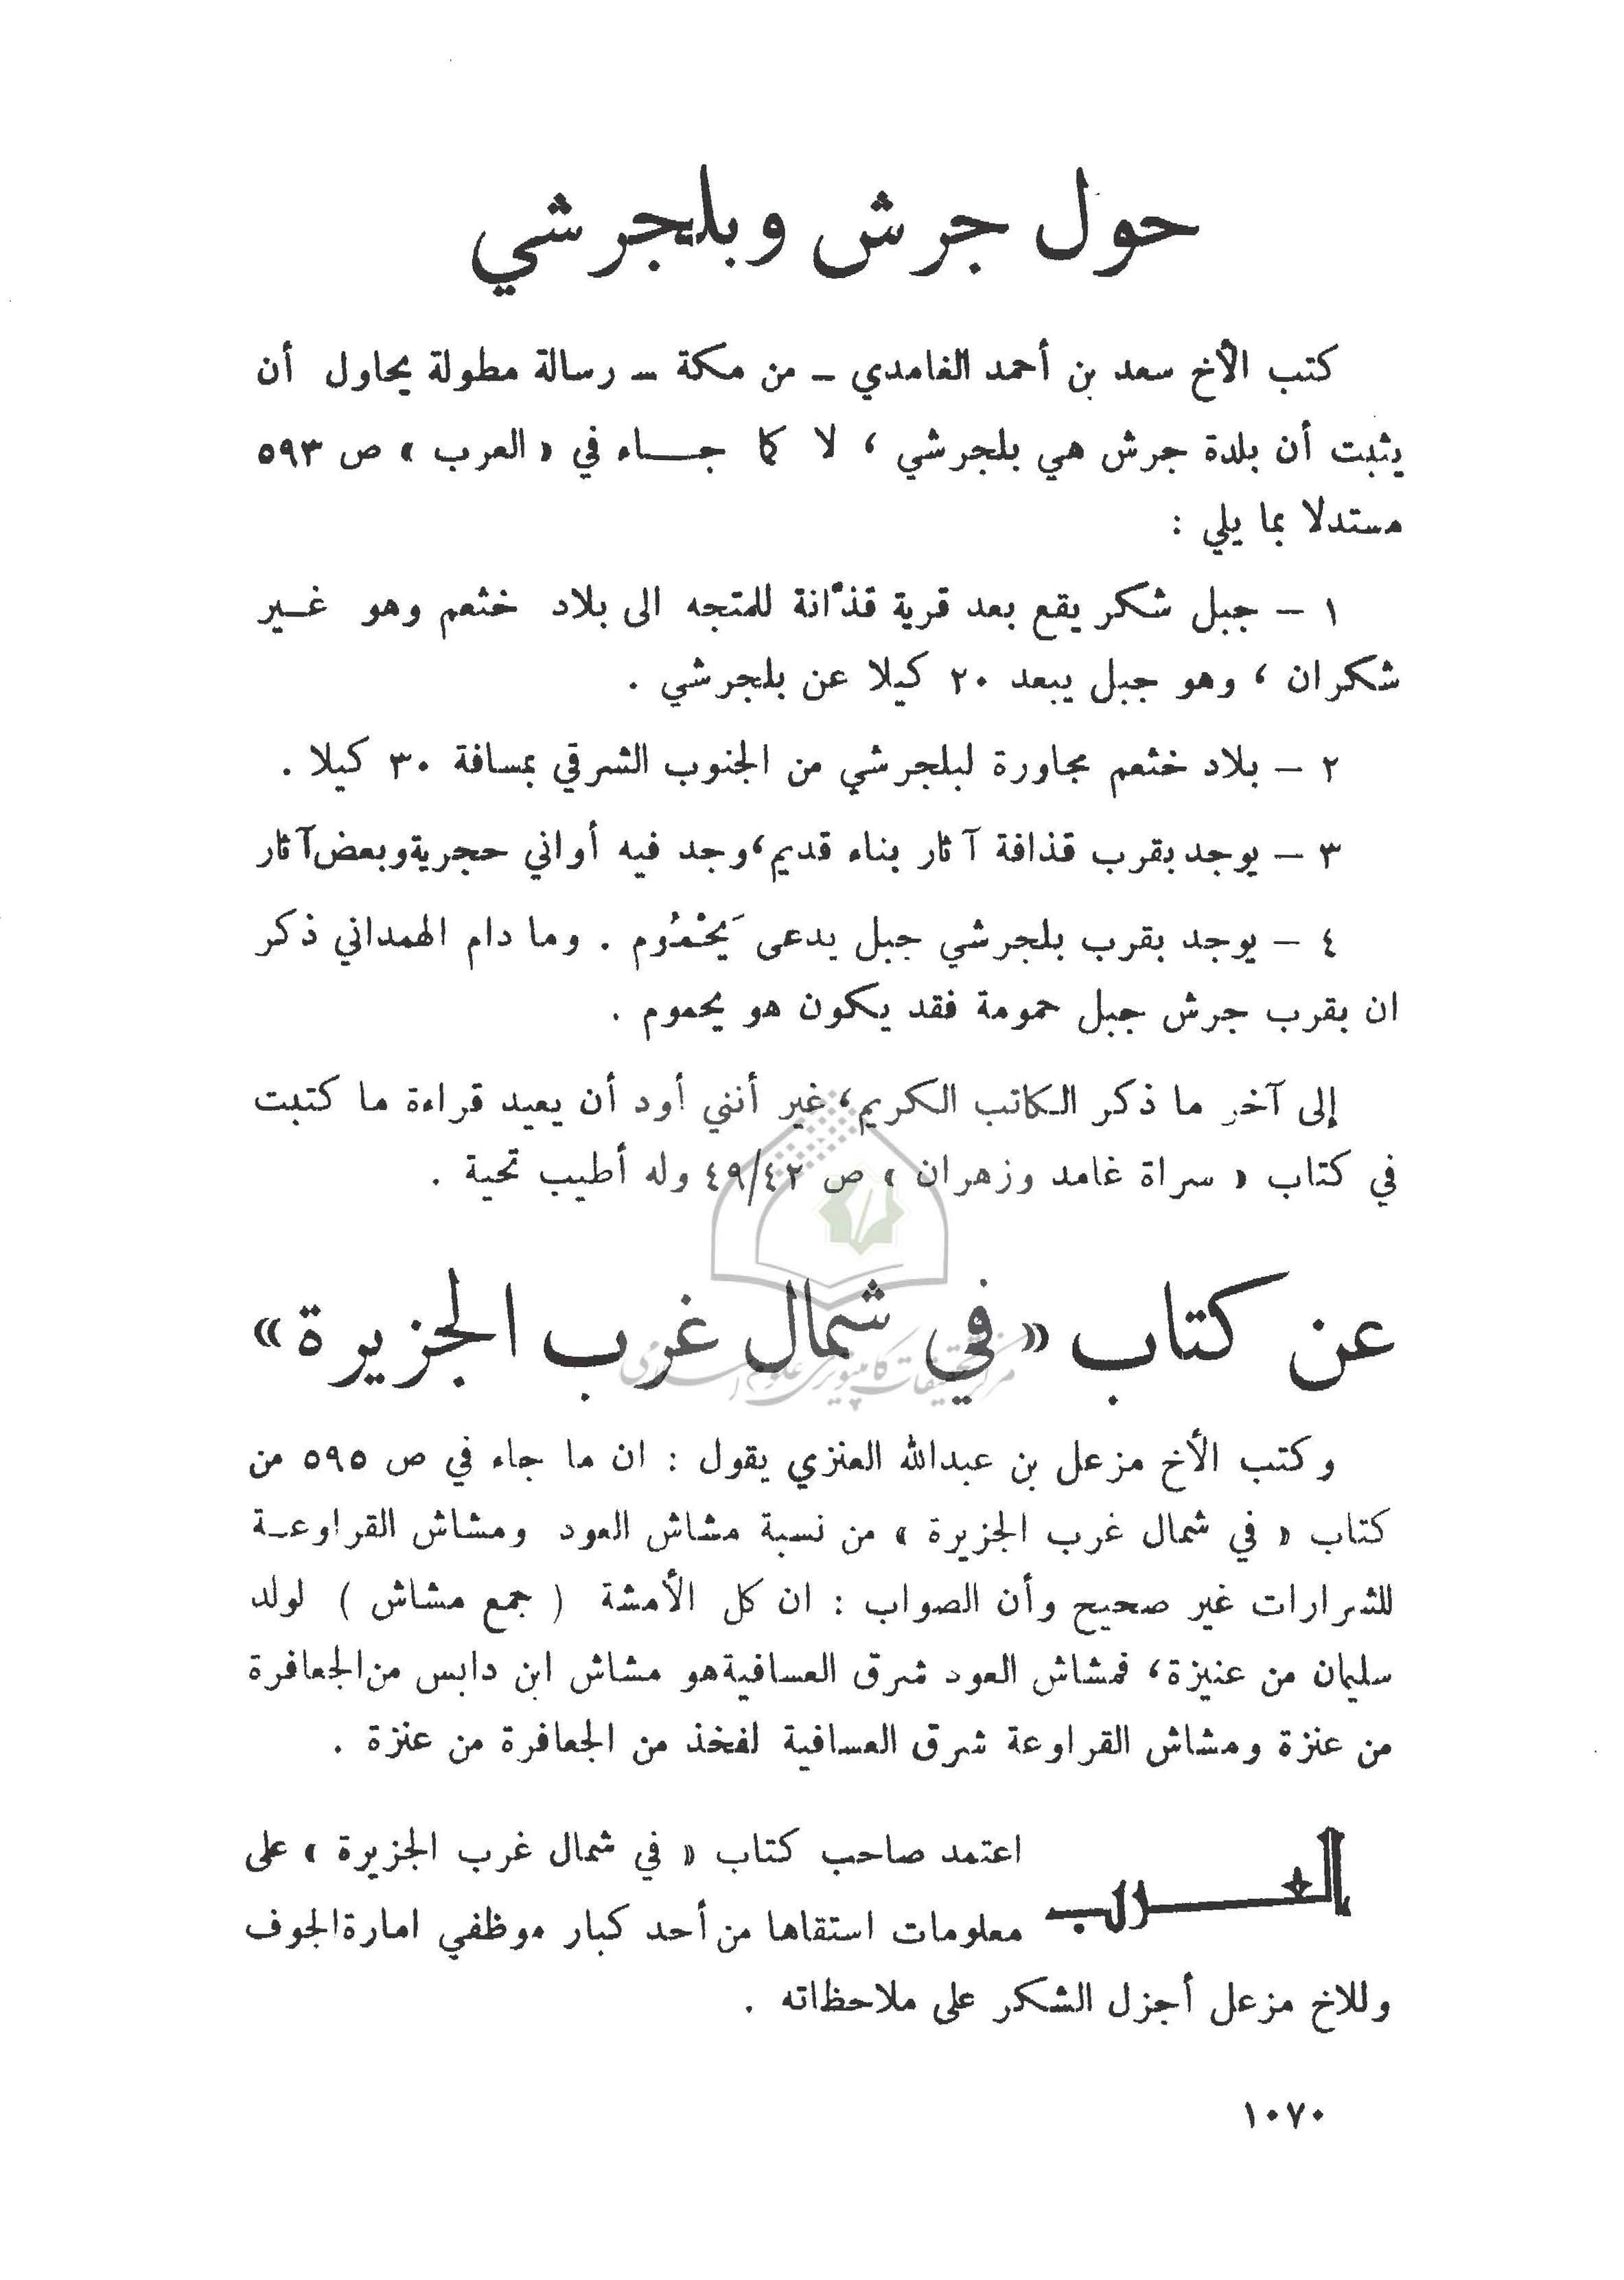 حول جرش وبلجرشي
كتب الأخ سعد بن أحمد الغامدي – من مكة – رسالة مطولة يحاول أن
يثبت أن بلدة جرش هي بلجرشي ، لا كما جـــاء في « العرب » ص ٥٩٣
مستدلا بما يلي :
١ – جبل شكر يقع بعد قرية قذّانة للمتجه الى بلاد خثعم وهو غـير
شكران ، وهو جبل يبعد ٢٠ كيلا عن بلجرشي .
٢ – بلاد خثعم مجاورة لبلجرشي من الجنوب الشرقي بمسافة ٣٠ كيلا .
٣ – يوجد بقرب قذافة آثار بناء قديم، وجد فيه أواني حجرية وبعض آثار
٤ – يوجد بقرب بلجرشي جبل يدعى يَحْمُوم . وما دام الهمداني ذكر
ان بقرب جرش جبل حمومة فقد يكون هو يحموم .
إلى آخر ما ذكر الكاتب الكريم، غير أنني أود أن يعيد قراءة ما كتبت
في كتاب « سراة غامد وزهران » ص ٤٩/٤٢ وله أطيب تحية .
عن كتاب «في شمال غرب الجزيرة»
مركز تحقيقات كامپيوترى علوم اسلامى
وكتب الأخ مزعل بن عبدالله العنزي يقول : ان ما جاء في ص ٥٩٥ من
كتاب « في شمال غرب الجزيرة » من نسبة مشاش العود ومشاش القراوعـة
للشرارات غير صحيح وأن الصواب : ان كل الأمشة ( جمع مشاش ) لولد
سليمان من عنيزة، فمشاش العود شرق العسافية هو مشاش ابن دابس من الجعافرة
من عنزة ومشاش القراوعة شرق العسافية لفخذ من الجعافرة من عنزة .
العـــرب اعتمد صاحب كتاب « في شمال غرب الجزيرة » على
معلومات استقاها من أحد كبار موظفي امارة الجوف
وللاخ مزعل أجزل الشكر على ملاحظاته .
١٠٧٠